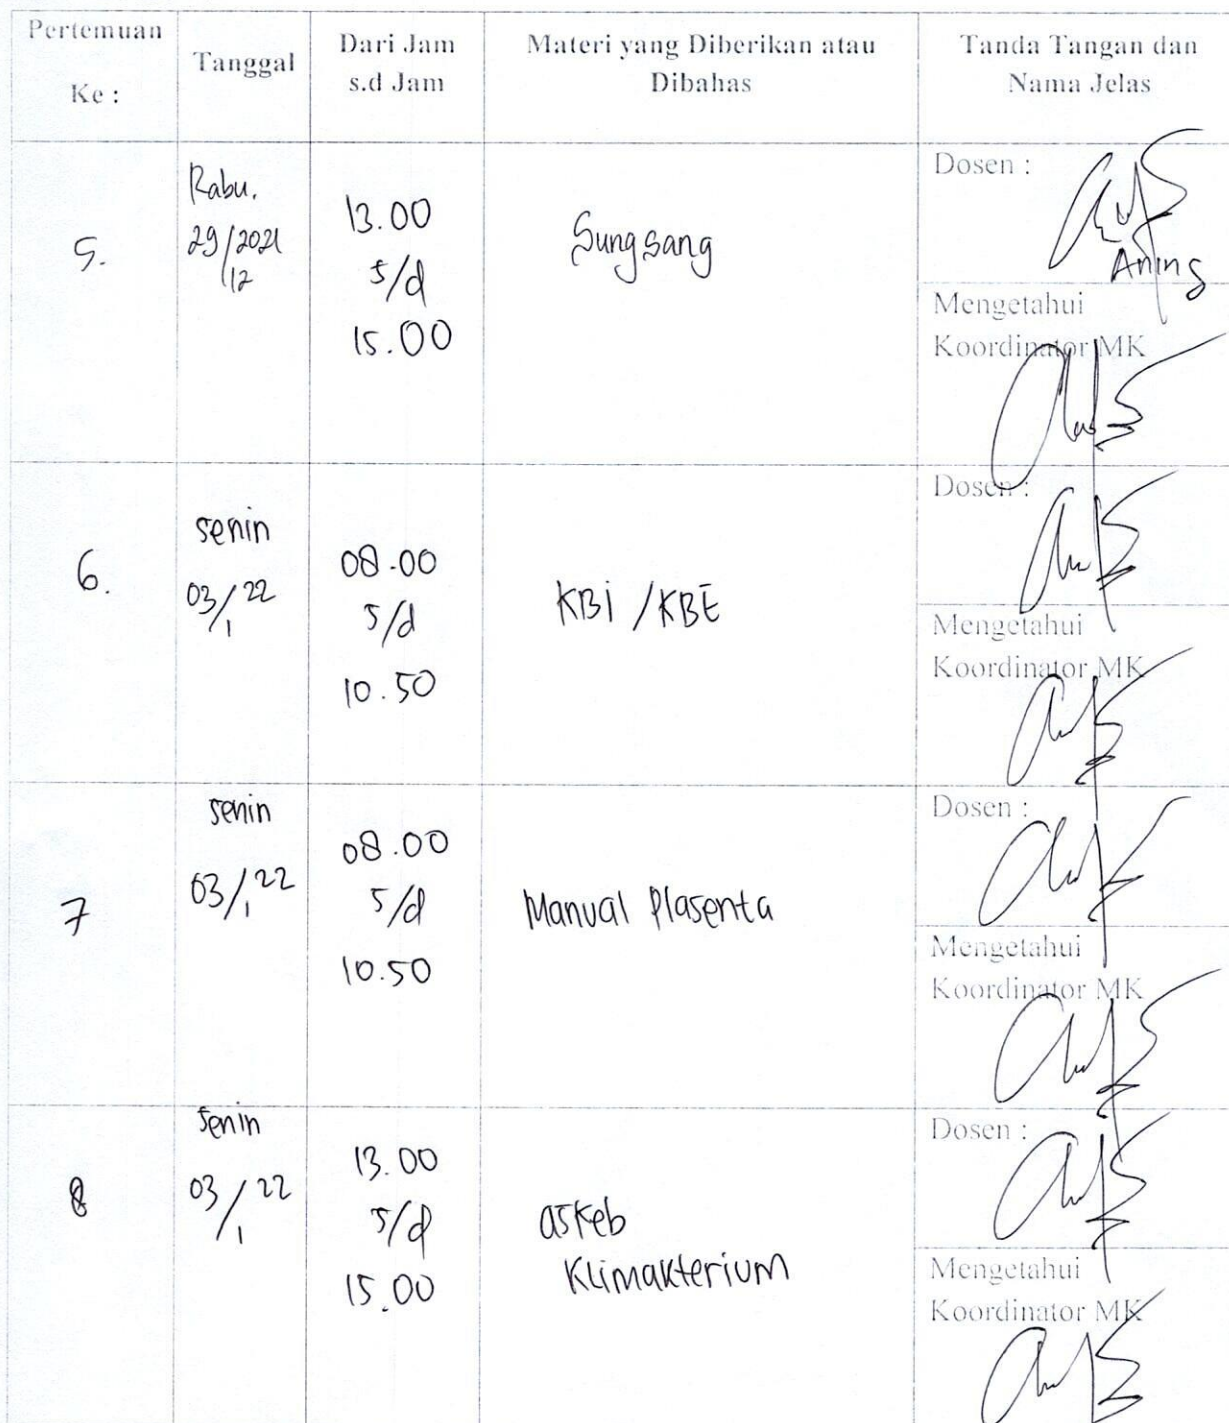 Pertemuan
Ke :
Tanggal
Dari Jam
s.d Jam
Materi yang Diberikan atau
Dibahas
Tanda Tangan dan
Nama Jelas
5.
Rabu.
29/2021
12
13.00
s/d
15.00
Sungsang
Dosen :
Aning
Mengetahui
Koordinator MK
6.
senin
03/22
1
08.00
s/d
10.50
KBi /KBE
Dosen :
Mengetahui
Koordinator MK
7
senin
03/22
1
08.00
s/d
10.50
Manual Plasenta
Dosen :
Mengetahui
Koordinator MK
8
senin
03/22
1
13.00
s/d
15.00
askeb
Klimakterium
Dosen :
Mengetahui
Koordinator MK